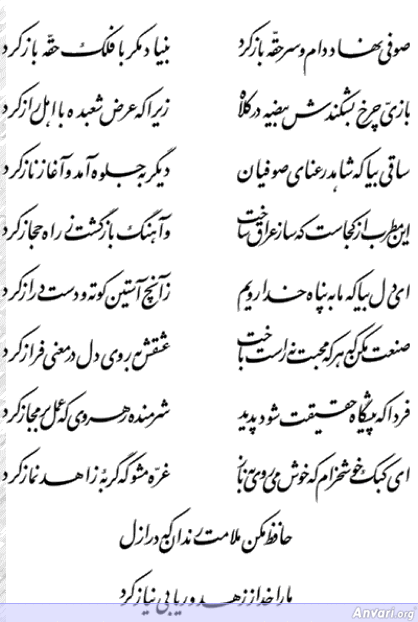 صوفی نهاد دام و سر حقه باز کرد بنیاد مکر با فلک حقّه باز کرد
بازیّ چرخ بشکندش بیضه در کلاه زیرا که عرض شعبده با اهل راز کرد
ساقی بیا که شاهد رعنای صوفیان دیگر به جلوه آمد و آغاز ناز کرد
این مطرب از کجاست که ساز عراق ساخت و آهنگ بازگشت ز راه حجاز کرد
ای دل بیا که ما به پناه خدا رویم زآنچ آستین کوته و دست دراز کرد
صنعت مکن که هر که محبت نه راست باخت عشقش به روی دل در معنی فراز کرد
فردا که پیشگاه حقیقت شود پدید شرمنده رهروی که عمل بر مجاز کرد
ای کبک خوشخرام که خوش می‌روی به ناز غرّه مشو که گربهٔ زاهد نماز کرد
حافظ مکن ملامت رندان که در ازل
ما را خدا از زهد و ریا بی نیاز کرد
Anvari.org